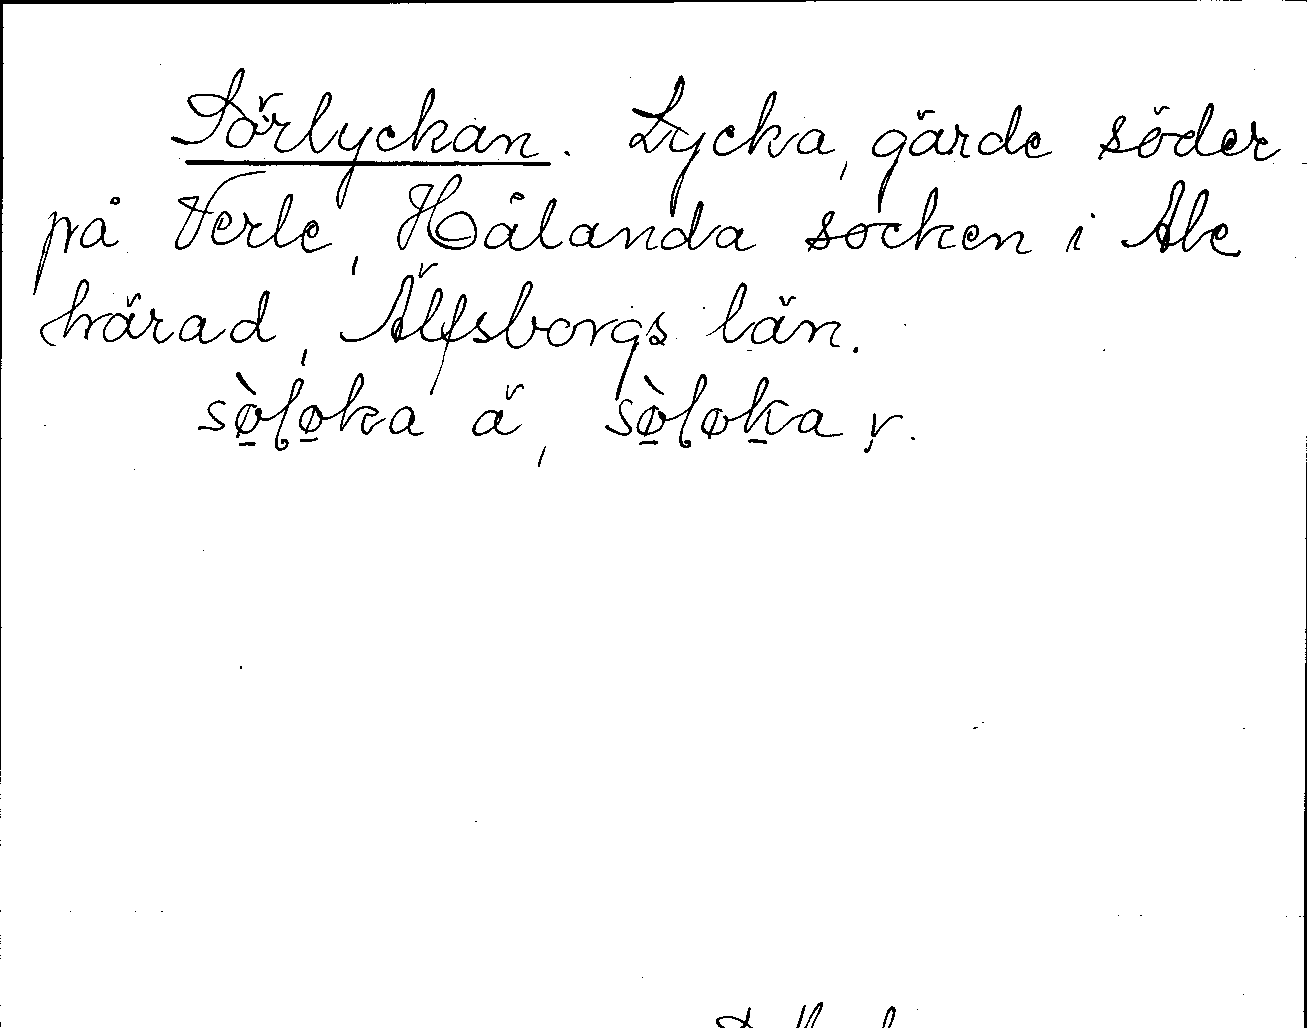 Sörlyckan. Lycka, gärde söder
på Verle, Hålanda socken i Ale
härad, Älfsborgs län.
sø̀løka ä, sø̀løka r.